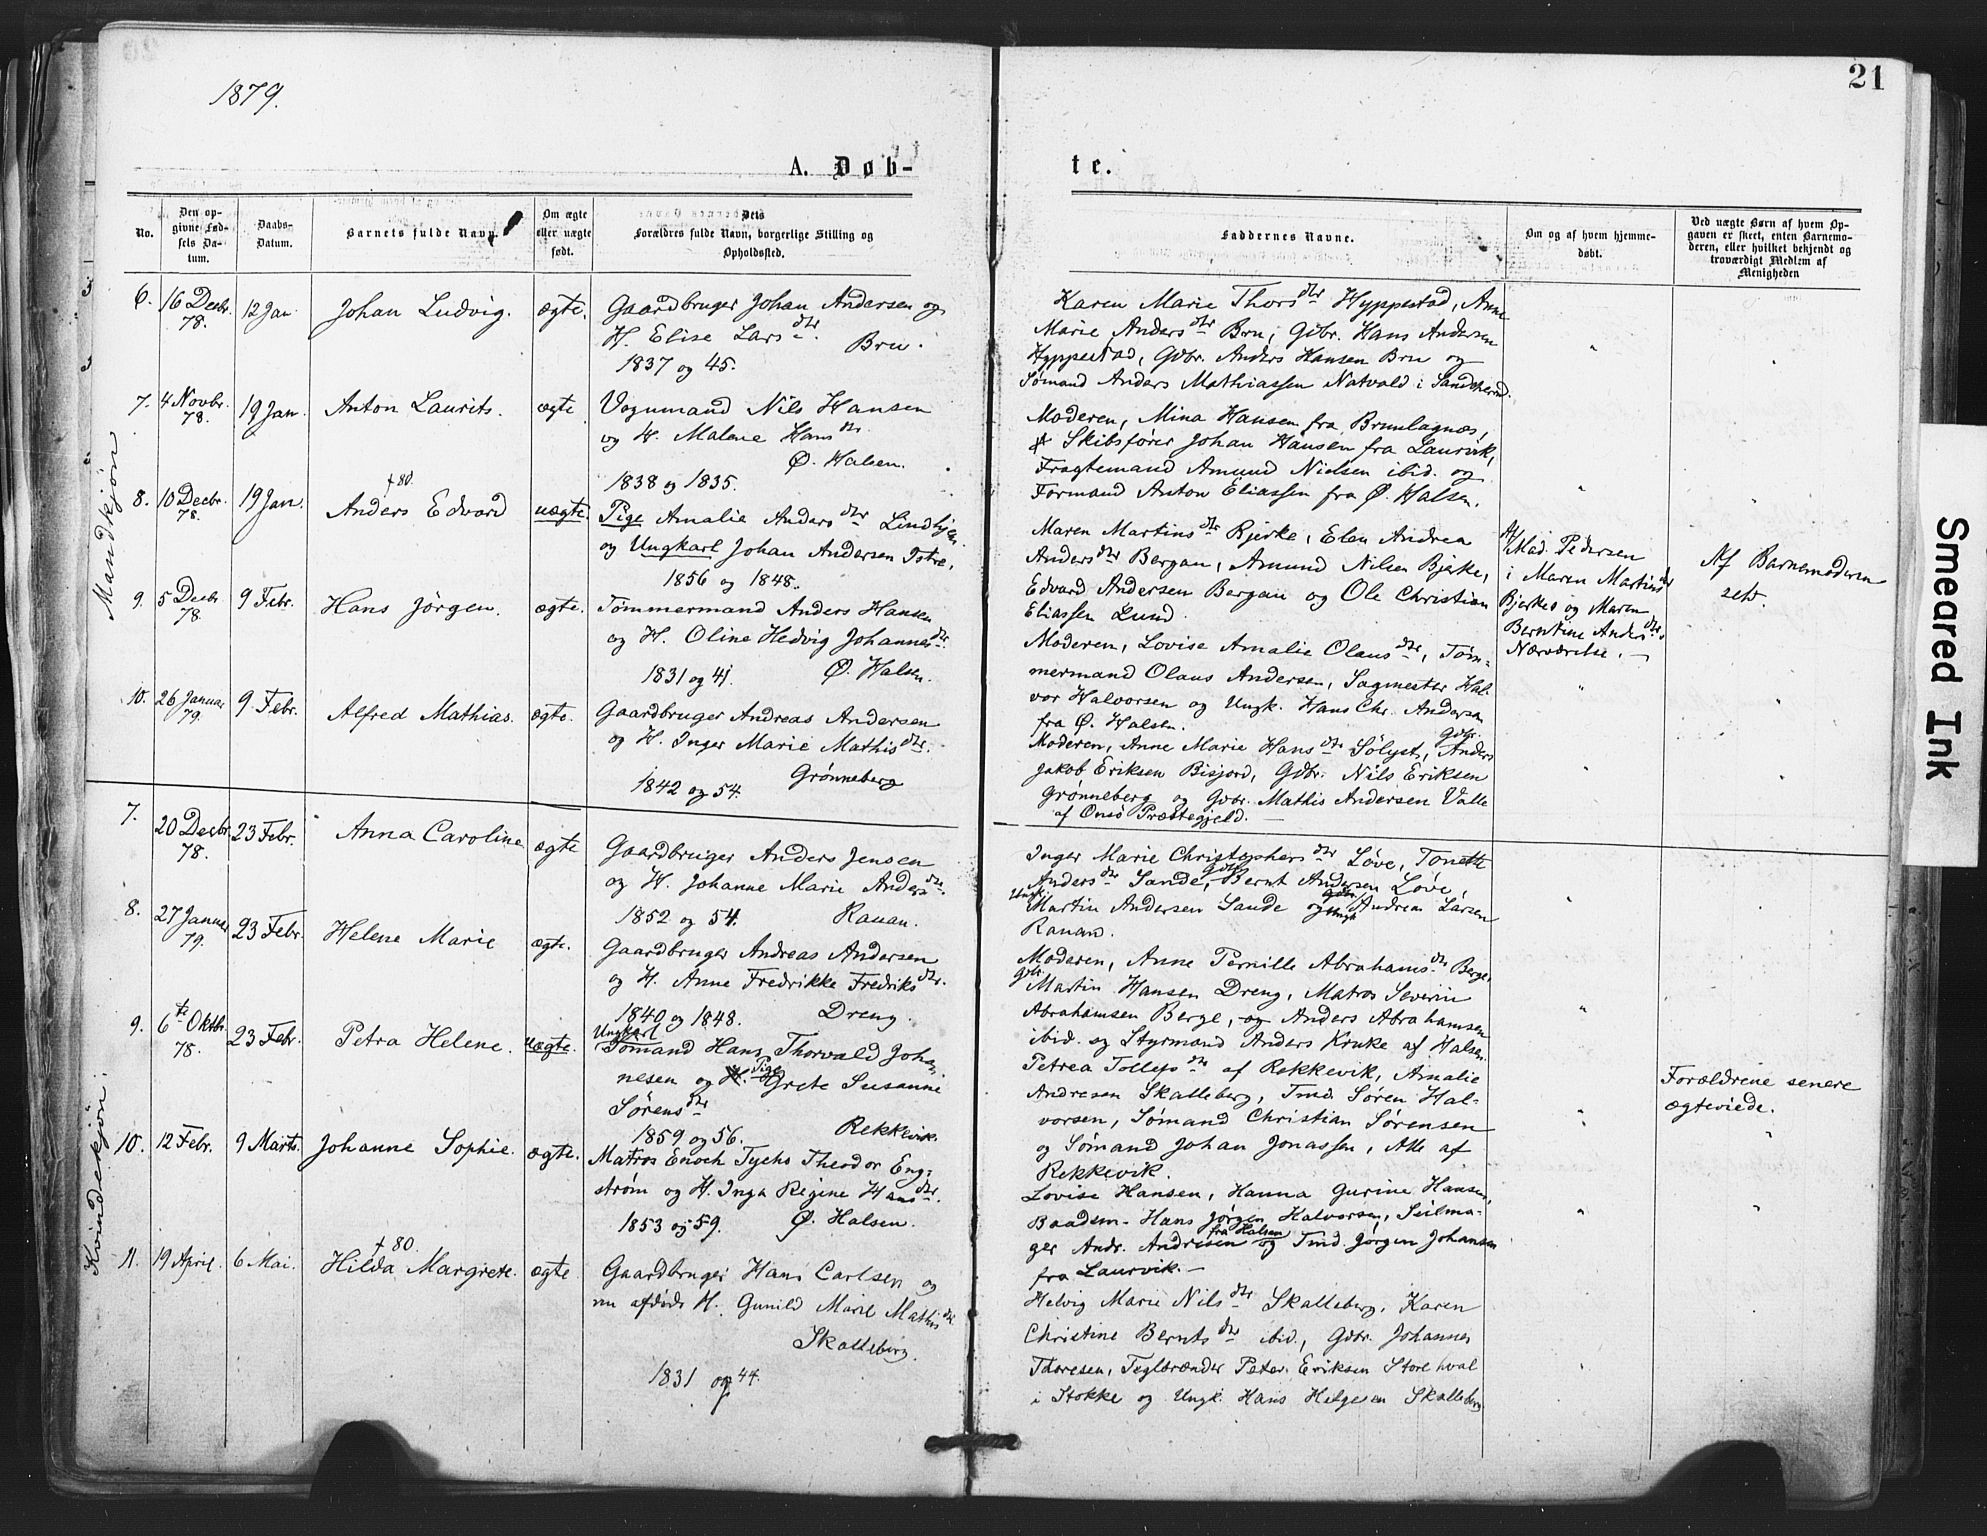 1879.
21
A. Døb-
te.
No.
Den op-
givne Fød-
sels Da-
tum.
Daabs-
Datum.
Barnets fulde Navn.
Om ægte
eller uægte
født.
Dets
Forældres fulde Navn, borgerlige Stilling og
Opholdssted.
Faddernes Navne.
Om og af hvem hjemme-
døbt.
Ved uægte Børn af hvem Op-
gaven er skeet, enten Barnemo-
deren, eller hvilket bekjendt og
troværdigt Medlem af
Menigheden
Mandkjøn
6. 16 Decbr. 78. 12 Jan Johan Ludvig. ægte. Gaardbruger Johan Andersen og
H. Elise Larsdtr. Bru.
1837 og 45.
Karen Marie Thorsdtr Hyppestad, Anne
Marie Andersdtr Bru, Gdbr. Hans Andersen
Hyppestad, Gdbr. Anders Hansen Bru og
Sømand Anders Mathiassen Natvald i Sandeherrd.
7. 4 Novbr. 78. 19 Jan. Anton Laurits. ægte Vognmand Nils Hansen
og H. Malene Hansdtr.
Ø. Halsen.
1838 og 1835.
Moderen, Mina Hansen fra Brunlagnæs,
Skibsfører Johan Hansen fra Laurvik,
Fragtemand Amund Nielsen ibid. og
Formand Anton Eliassen fra Ø. Halsen.
8. 10 Decbr. 78. 19 Jan. †80. Anders Edvard uægte. Pige Amalie Andersdtr Lindhjem
og Ungkarl Johan Andersen Istre,
1856 og 1848.
Maren Martinsdtr Bjerke, Elen Andrea
Andersdtr Bergan, Amund Nilsen Bjerke,
Edvard Andersen Bergan og Ole Christian
Eliassen Lund.
Af
Mad. Pedersen
i Maren Martinsdtr
Bjerkes og Maren
Berntine Andersdtr
Nærværelse. -
Af Barnemoderen
selv.
9. 5 Decbr 78. 9 Febr. Hans Jørgen. ægte. Tømmermand Anders Hansen
og H. Oline Hedvig Johannesdtr.
1831 og 41. Ø. Halsen.
Moderen, Lovise Amalie Olausdtr, Tøm-
mermand Olaus Andersen, Sagmester Hal-
vor Halvorsen og Ungk. Hans Chr. Andersen
fra Ø. Halsen.
10. 26 Januar 79. 9 Febr. Alfred Mathias. ægte. Gaardbruger Andreas Andersen
og H. Inger Marie Mathisdtr.
Grønneberg
1842 og 54.
Moderen, Anne Marie Hansdtr Sølyst, Gdbr. Anders
Jakob Eriksen Bisjord, Gdbr. Nils Eriksen
Grønneberg og Gdbr. Mathis Andersen Valle
af Onsø Præstegjeld. -
Kvindekjøn.
7. 20 Decbr. 78. 23 Febr. Anna Caroline ægte Gaardbruger Anders Jensen
og H. Johanne Marie Andersdtr.
1852 og 54. Rauan.
Inger Marie Christophersdtr Løve, Tonette
Andersdtr Sande, Gdbr Bernt Andersen Løve,
Ungk. Martin Andersen Sande og Andreas Larsen
Rauan.
8. 27 Januar 79. 23 Febr. Helene Marie ægte. Gaardbruger Andreas Andersen
og H. Anne Fredrikke Fredriksdtr.
1840 og 1848. Dreng.
Moderen, Anne Pernille Abrahamsdtr Berge,
Gdbr. Martin Hansen Dreng, Matros Severin
Abrahamsen Berge, og Anders Abrahamsen
ibid. og Styrmand Anders Kruke af Halsen.
9. 6te Oktbr. 78. 23 Febr. Petra Helene. uægte. Ungkarl
Sømand Hans Thorvald Johan-
nesen og H. Pige Grete Susanne
Sørensdtr
1859 og 56. Rekkevik.
Petrea Tollefsdtr af Rekkevik, Amalie
Andresen Skalleberg, Tmd. Søren Hal-
vorsen, Sømand Christian Sørensen
og Sømand Johan Jonassen, Alle af
Rekkevik.
Forældrene senere
ægteviede.
10. 12 Febr. 9 Marts. Johanne Sophie. ægte. Matros Enoch Tycho Theodor Eng-
strøm og H. Inga Regine Hansdtr.
1853 og 59. Ø. Halsen.
Lovise Hansen, Hanna Gurine Hansen,
Baadsm. Hans Jørgen Halvorsen, Seilma-
ger Andr. Andresen fra Halsen og Tmd. Jørgen Johansen
fra Laurvik. -
11. 19 April. 6 Mai. †80. Hilda Margrete. ægte. Gaardbruger Hans Carlsen og
nu afdøde H. Gunild Marie Mathisdtr.
Skalleberg.
1831 og 44.
Helvig Marie Nilsdtr Skalleberg, Karen
Christine Berntsdtr ibid, Gdbr. Johannes
Thoresen, Teglbrænder Peter Eriksen Storehval
i Stokke og Ungk. Hans Helgesen Skalleberg
Smeared Ink